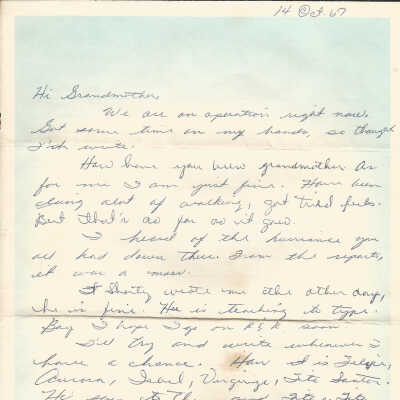 14 Oct. 67
Hi Grandmother,
We are on operation right now.
Got some time on my hands, so thought
I'd write.
How have you been grandmother. As
for me I am just fine. Have been
doing alot of walking, got tired feet.
But that's as far as it goes.
I heard of the hurricane you
all had down there. From the reports,
it was a mess.
Shorty wrote me the other day,
he is fine. He is teaching to type.
Boy I hope I go on R & R soon
I'll try and write whenever I
have a chance. How is
Aurora, Isabel,